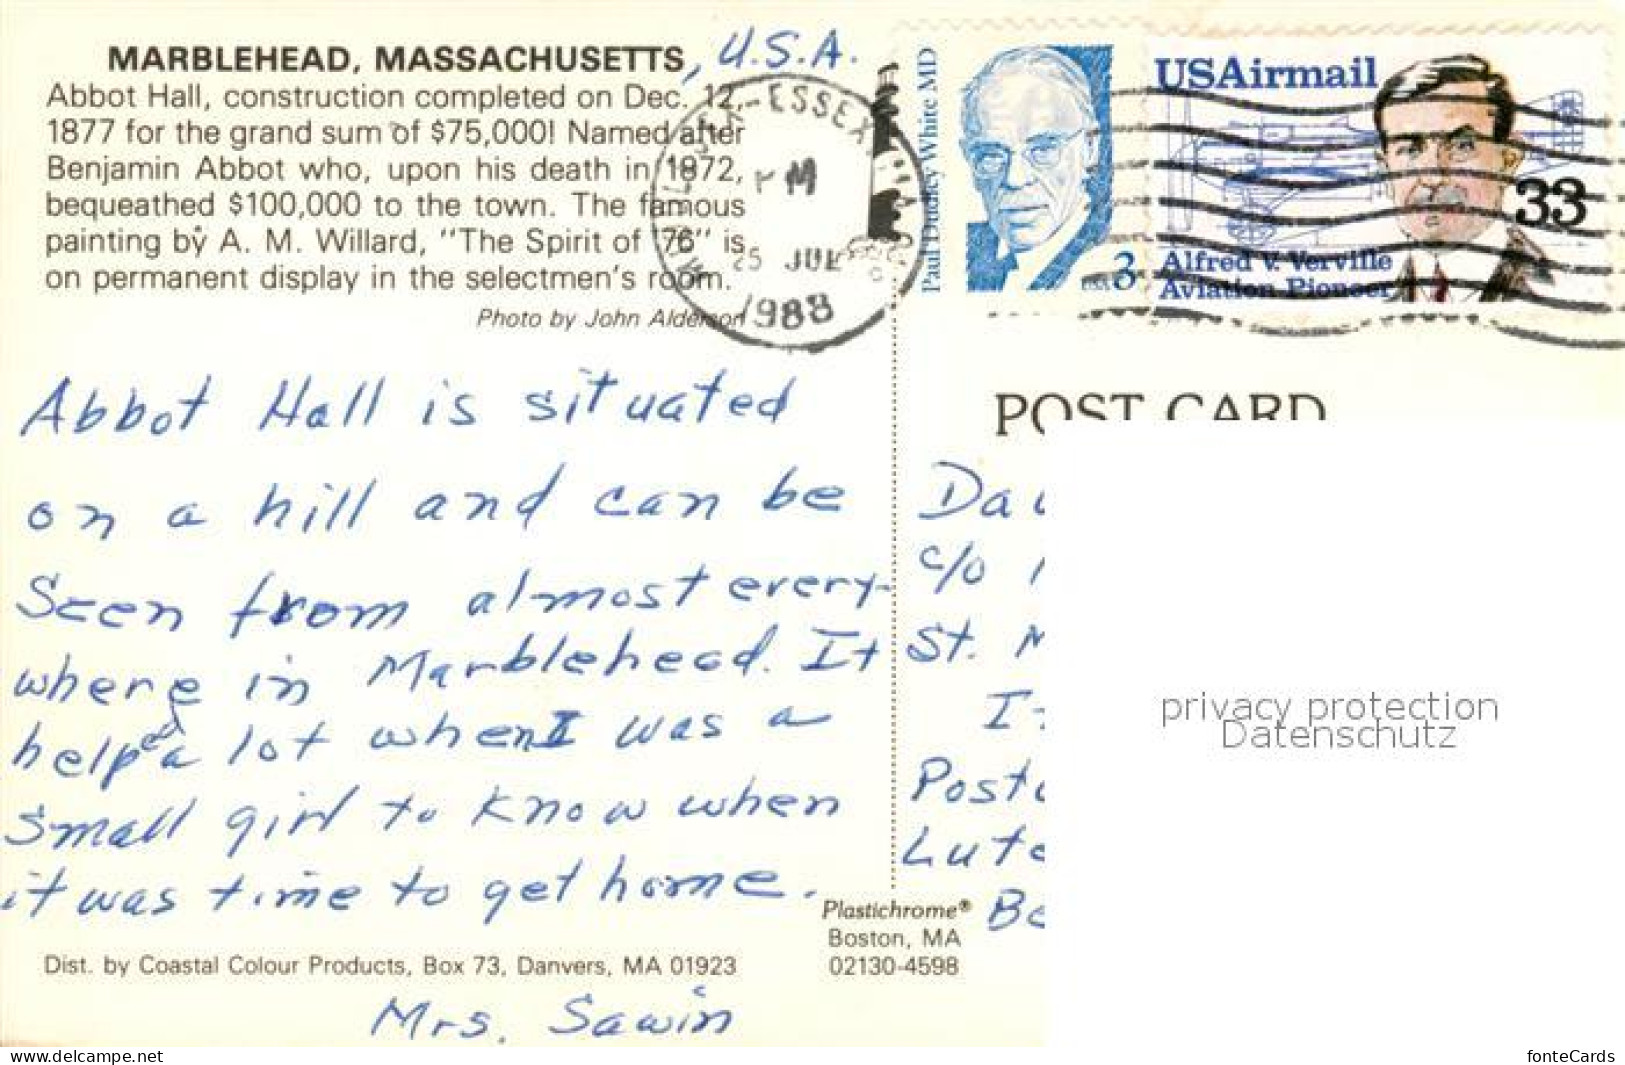 MARBLEHEAD, MASSACHUSETTS, U.S.A.
Abbot Hall, construction completed on Dec. 12,
1877 for the grand sum of $75,000! Named after
Benjamin Abbot who, upon his death in 1872,
bequeathed $100,000 to the town. The famous
painting by A. M. Willard, "The Spirit of '76" is
on permanent display in the selectmen's room.
Photo by John Alderson
ESSEX
PM
25 JUL
1988
Paul Dudley White MD
USA 3
USAirmail
33
Alfred V. Verville
Aviation Pioneer
POST CARD
Abbot Hall is situated
on a hill and can be
Seen from almost every-
where in Marblehead. It
helped a lot when I was a
small girl to know when
it was time to get home.
Mrs. Sawin
c/o
St.
Plastichrome®
Boston, MA
02130-4598
Dist. by Coastal Colour Products, Box 73, Danvers, MA 01923
privacy protection
Datenschutz
www.delcampe.net
fonteCards